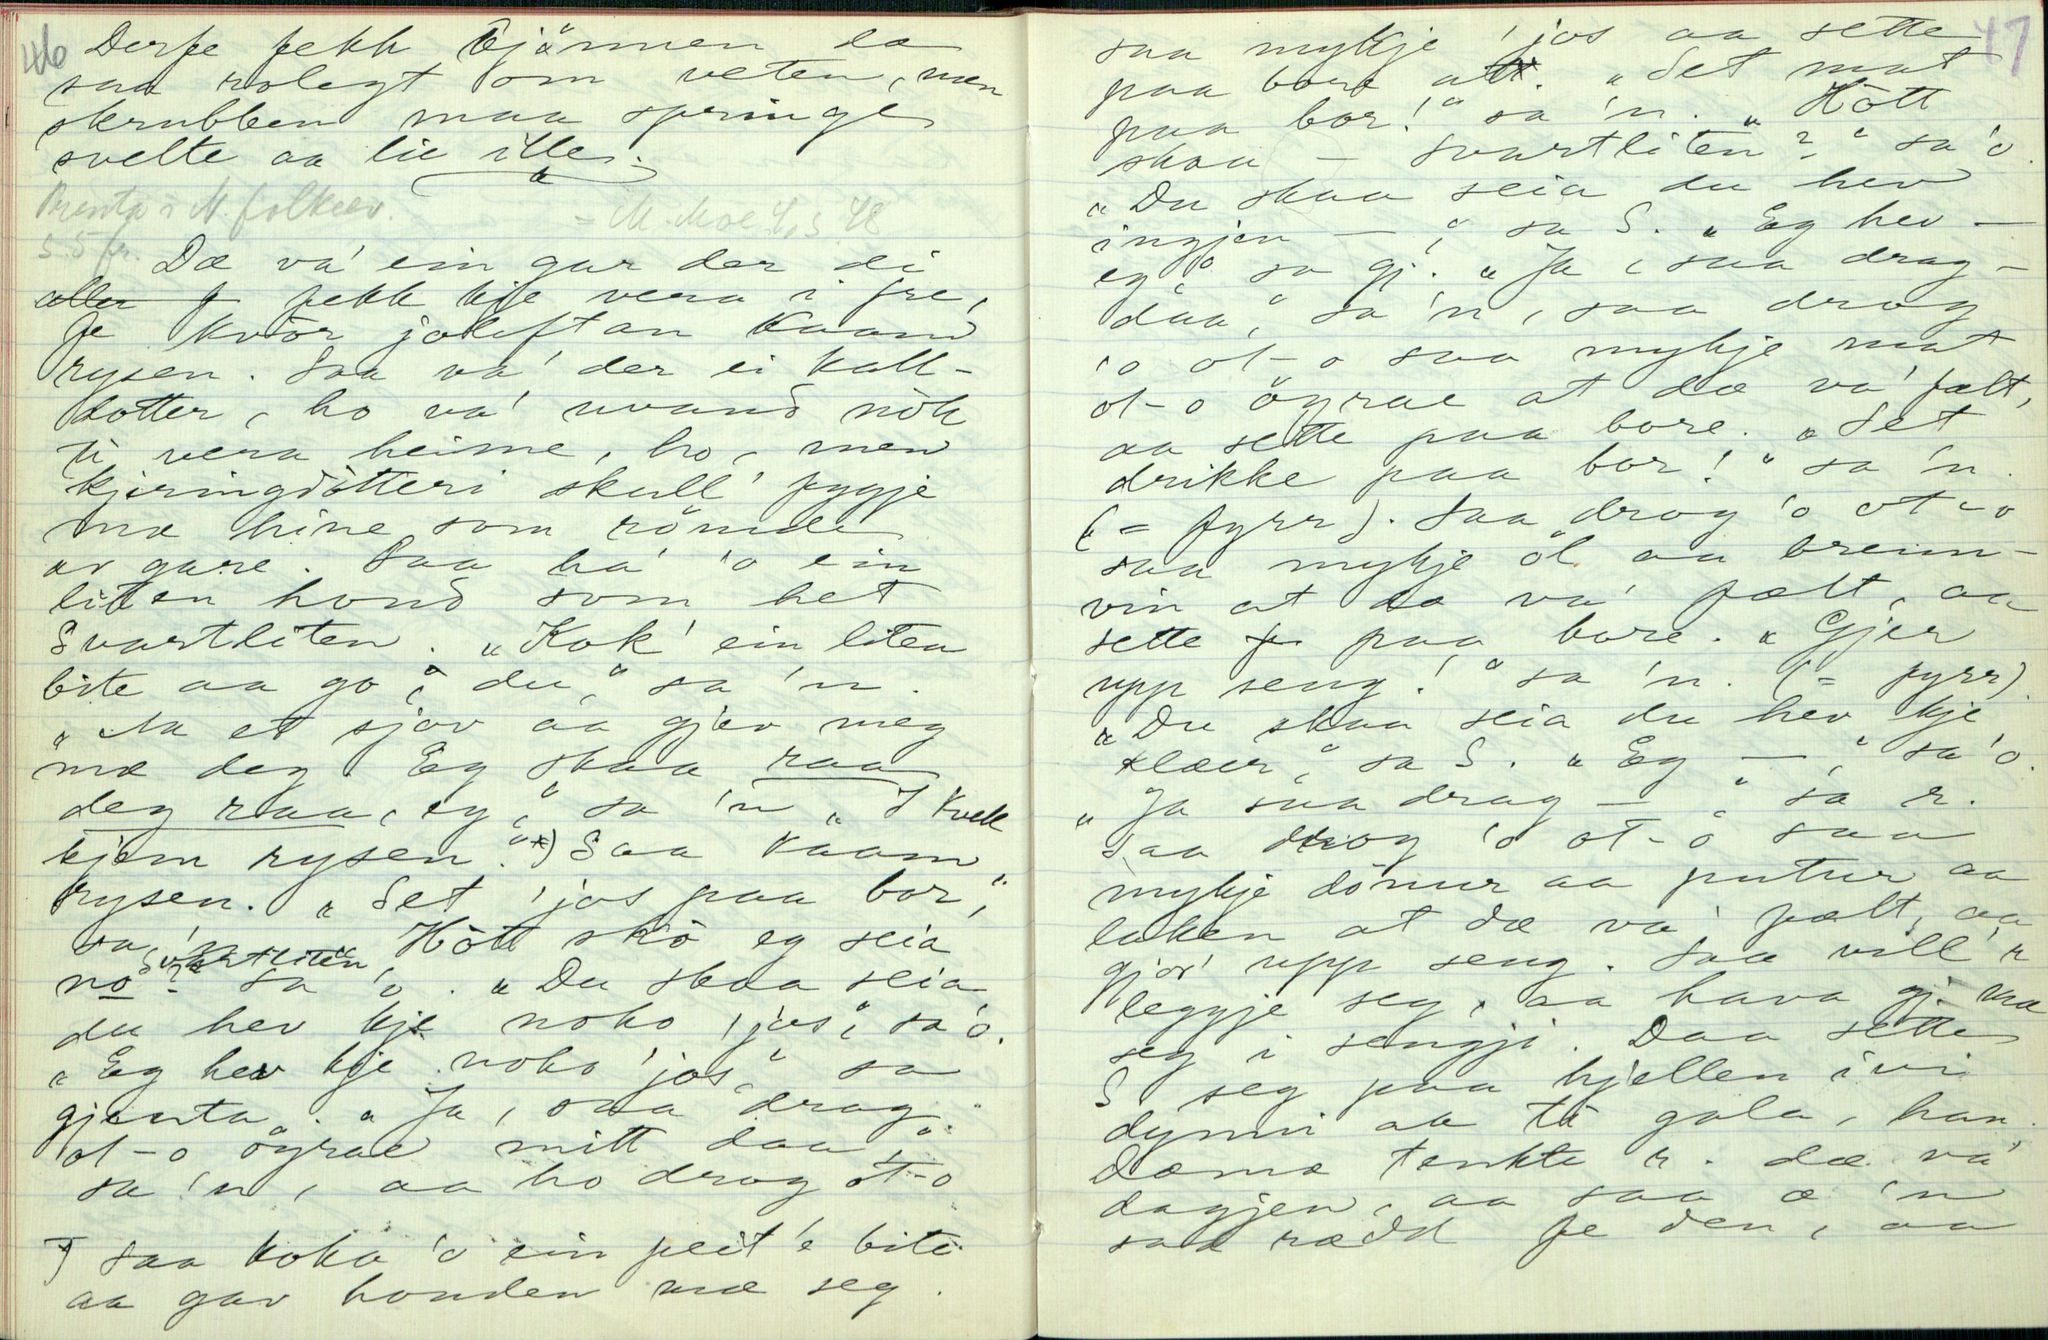 46
Derfe fekk bjönnen da
saa rolegt om veten, men
skrubben maa springe
svelte aa lie ille.
Prenta i N. folkeev.
= M. Moe 4, s 48
s. 5 fr.
Dæ va' ein gar der di
aller f fekk kje vera i fre,
fe kvör joleftan kaam
rysen. Saa va' der ei kall-
dotter, ho va' uvand nök
ti vera heime, ho, men
kjeringdötteri skull' fygje
mæ hine som römde
av gare. Saa ha' 'o ein
liten hond som het
Svartliten. "Kok' ein liten
bite aa go', du," sa 'n.
"Aa et sjöv aa gjev meg
mæ deg. Eg skaa raa
deg raa, eg," sa 'n "I kvell
kjem rysen." *) Saa kaam
rysen. "Set 'jos paa bor,"
sa 'n. "Hött skö eg seia
no Svartliten?" sa 'o. "Du skaa seia
du hev kje noko 'jos," sa 'o.
"Eg hev kje noko 'jos," sa
gjenta. "Ja, saa drag
ot-o öyrae mitt daa,"
sa 'n, aa ho drog ot-o
*) Saa koka 'o ein feit'e bite
aa gav honden mæ seg.
47
saa mykje 'jos aa sette
paa bore alt. "Set mat
paa bor!" sa 'n. "Hött
skaa – Svartliten?" sa 'o.
"Du skaa seia du hev
ingjen –," sa S. "Eg hev –
eg," sa gj. "Ja, saa drag –
daa," sa 'n, saa drog
'o ot-o saa mykje mat
ot-o öyrae at dæ va' fælt,
aa sette paa bore. "Set
drikke paa bor!" sa 'n.
(= fyrr). Saa drog 'o ot-o
saa mykje öl aa brenn-
vin at dæ va' fælt, aa
sette fr paa bore. "Gjer
upp seng!" sa 'n. (= fyrr).
"Du skaa seia du hev kje
klæer," sa S. "Eg –," sa 'o.
"Ja saa drag –" sa r.
Saa drog 'o ot-o saa
mykje dönur aa putur aa
laken at dæ va' fælt, aa
gjor' upp seng. Saa vill' 'n
leggje seg, aa hava gj. mæ
seg i sengji. Daa sette
S seg paa hjellen ivi
dynni aa te gala, han.
Dæmæ tenkte r. dæ va'
dagjen, aa saa æ 'n
saa rædd fe den, aa